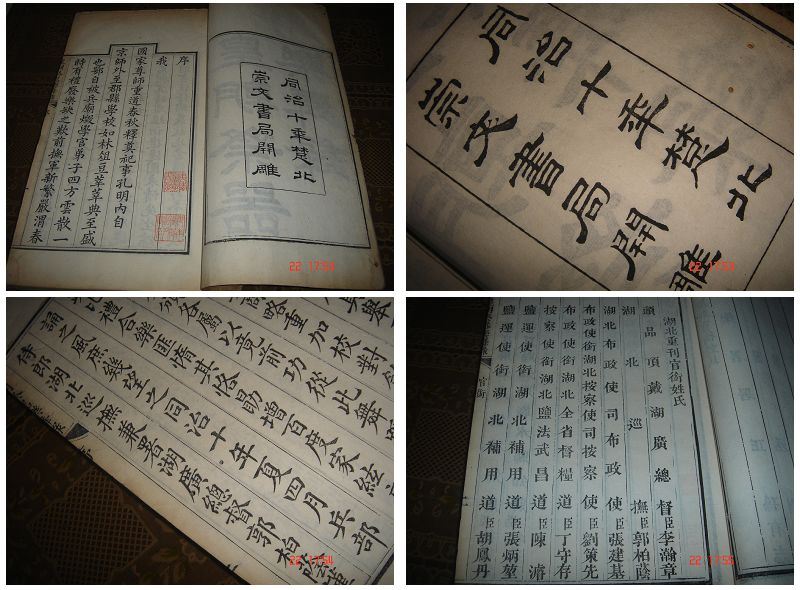 同治十年楚北
崇文書局開雕
序
我
國家尊師重道春秋釋奠祀事孔明內自
京師外至郡縣學校如林俎豆莘莘典至盛
也鄂自被兵廟燬學官弟子四方雲散一
時有禮廢樂缺之歎前撫軍新繁嚴渭春
22 17:54
同治十年楚北
崇文書局開雕
22 17:54
各屬以竟前功從此舞
禮合樂匪惰其恪勗增百度家絃
誦之風庶幾望之同治十年夏四月兵部
侍郎湖北巡撫兼署湖廣總督郭柏蔭
22 17:54
湖北重刊官銜姓氏
頭品頂戴湖廣總督臣李瀚章
湖北巡撫臣郭柏蔭
湖北布政使司布政使臣張建基
布政使銜湖北按察使司按察使臣劉策先
布政使銜湖北全省督糧道臣丁守存
按察使銜湖北鹽法武昌道臣陳濬
鹽運使銜湖北補用道臣張炳堃
鹽運使銜湖北補用道臣胡鳳丹
官銜
22 17:55